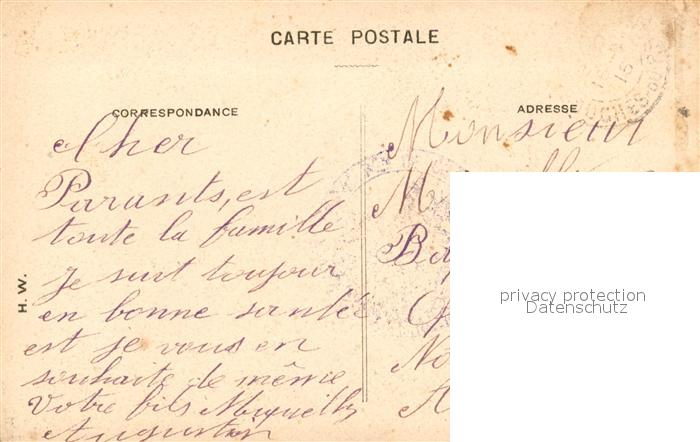 CARTE POSTALE
CORRESPONDANCE
ADRESSE
Cher
Parants, est
toute la famille
je suit toujour
en bonne santée
est je vous en
souhaite de même
Votre fils
Augustin
Monsieur
H. W.
15
privacy protection
Datenschutz